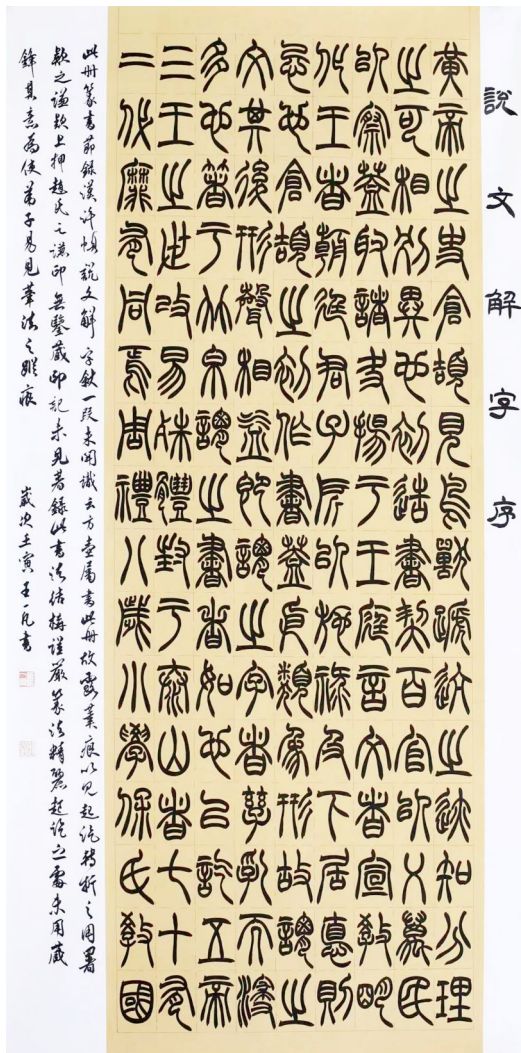 說文解字序
黃帝之史倉頡見鳥獸蹏迒之迹知分理
之可相別異也初造書契百官以乂萬民
以察蓋取諸夬揚于王庭言文者宣教明
化王者朝廷君子所以施祿及下居悳則
忌也倉頡之初作書蓋依類象形故謂之
文其後形聲相益即謂之字者孳乳而浸
多也箸于竹帛謂之書者如也以訖五帝
三王之世改易殊體封于泰山者七十有
二代靡有同焉周禮八歲小學保氏教國
此冊篆書節錄漢許慎說文解字敘一段未開識云方壺屬書此冊欲露筆痕以見起訖轉折之用署
款之謙款上押趙氏之謙印無鑒藏印記未見著錄此書法結構謹嚴篆法精麗起訖之處未用藏
鋒其意為使弟子易見筆法之蹤痕
歲次壬寅王一凡書